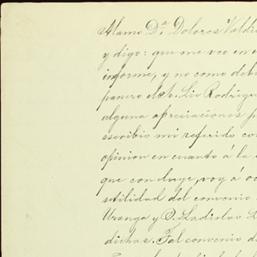 Alamo Dª Dolores Valdr
y digo: que me veo en e
informe, y no como debi
panero el Sr. Lic Rodrigu
alguna apreciaciones p
escribio mi referido com
opinion en cuanto á la
que concluye, voy á oc
utilidad del convenio
Uranga y D. Ladislao L
dichas. Tal convenio d